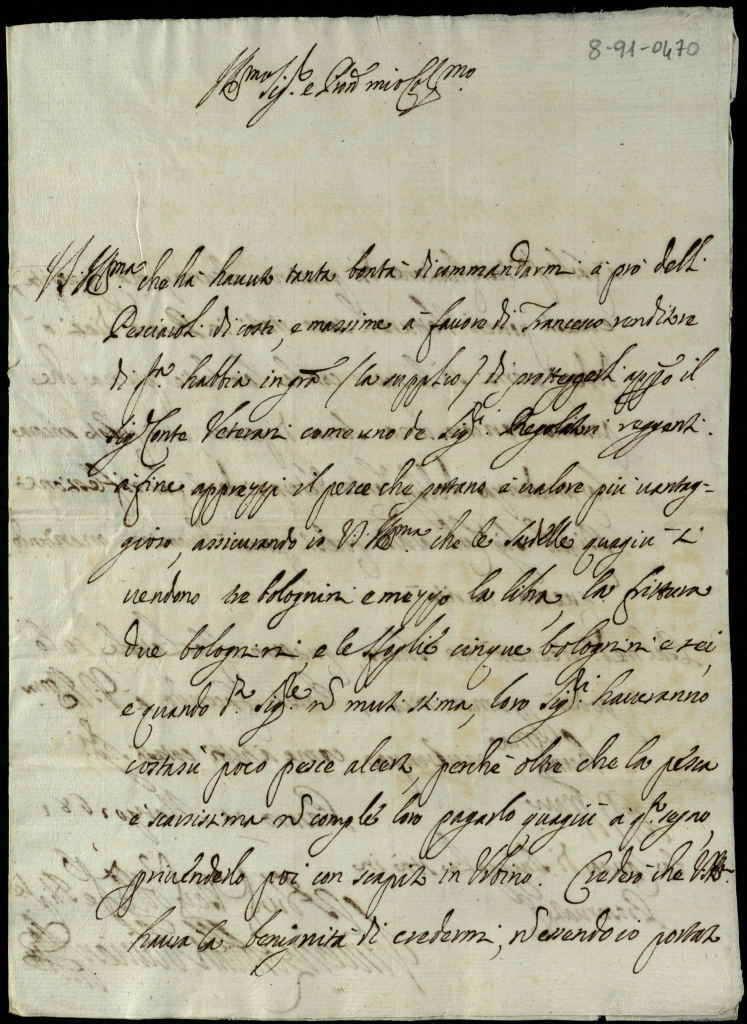 8-91-0470
Ill.mo Sig.r e Pron mio Col.mo
V.S. Ill.ma che ha hauuta tanta bontà di commandarmi à prò delli
Pesciaioli di costì, e massime à fauore di Francesco venditore
di habbia in gra (la supplico) di protteggerli appo il
Sig. Conte Veterani come uno de Sig.ri Regolatori reggenti
à fine apprezzi il pesce che portano à ualore più uantag-
gioso, assicurando io V.S. Ill.ma che le sardelle quagiù si
uendono tre bolognini e mezzo la libra, la frittura
due bolognini, e le sfoglie cinque bolognini e sei,
e quando d.o Sig.re nò muti stima, loro Sig.ri haueranno
costasù poco pesce alcerto, perche oltre che la pesca
è scarsissima nò comple loro pagarlo quagiù à q.o segno
p riuenderlo poi con scapito in Vrbino. Crederò che V.S. Ill.
haurà la benignità di credermi, nò essendo io portato